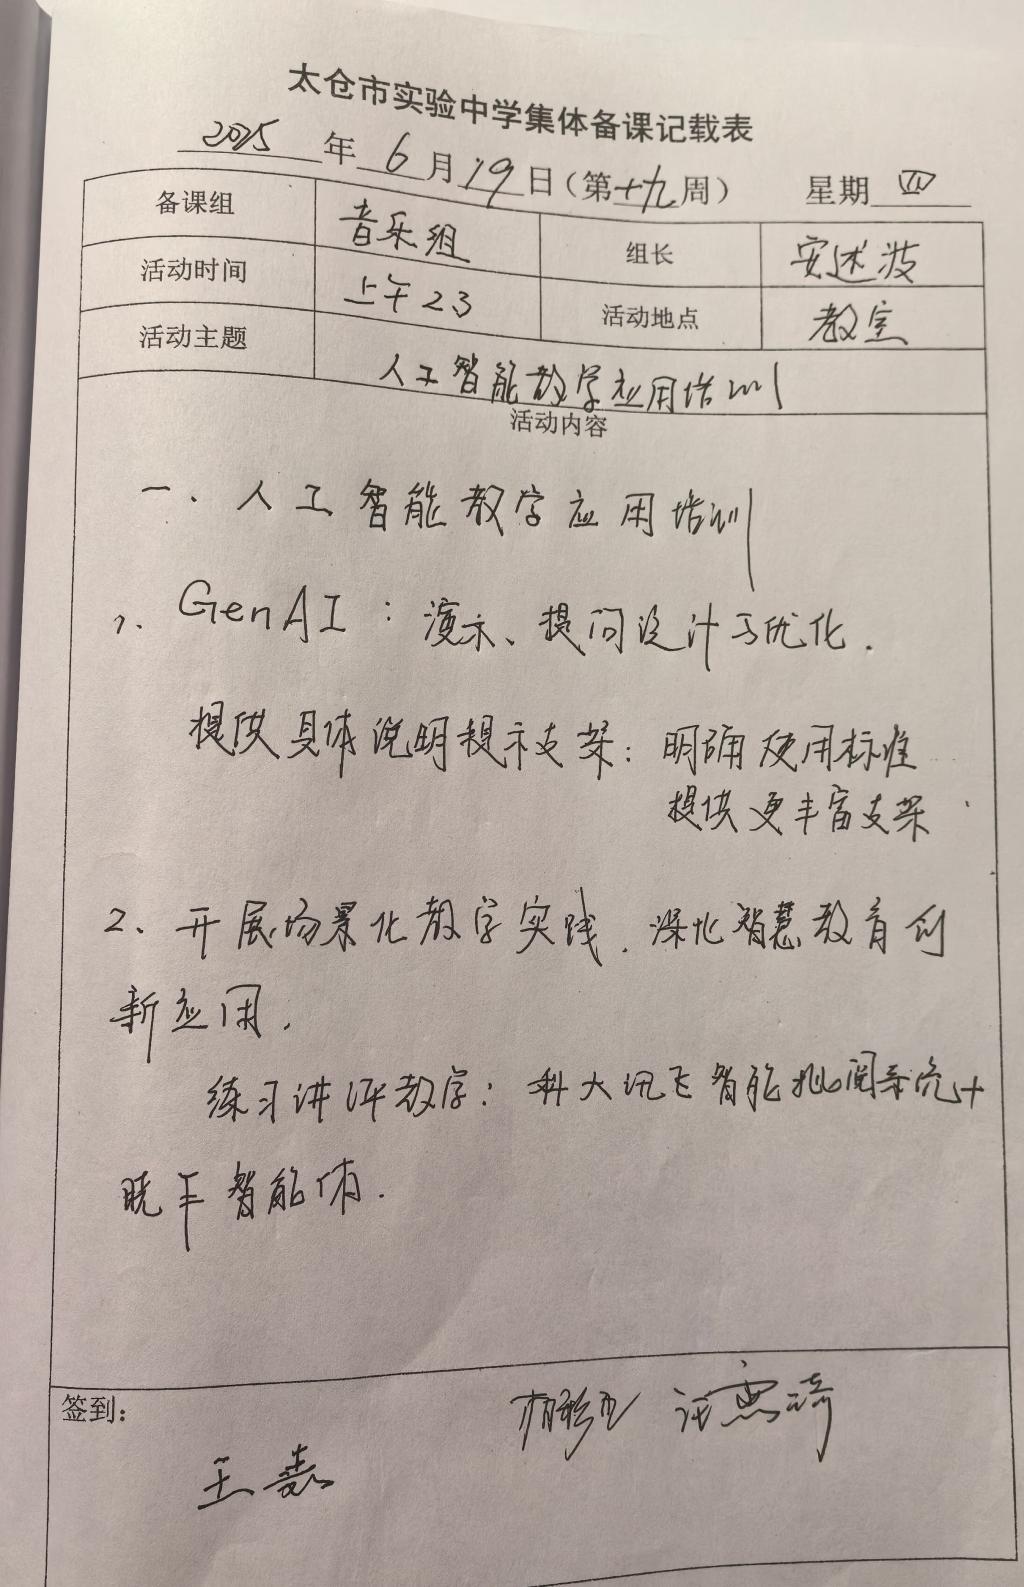 太仓市实验中学集体备课记载表
2025年6月19日（第十九周） 星期四
备课组 音乐组 组长 安述波
活动时间 上午23 活动地点 教室
活动主题 人工智能教学应用培训
活动内容
一、人工智能教学应用培训
1、GenAI：演示、提问设计与优化.
提供具体说明提示支架：明确使用标准
提供更丰富支架
2、开展场景化教学实践，深化智慧教育创
新应用.
练习讲评教学：科大讯飞智能批阅系统+
晓羊智能体.
签到：
王